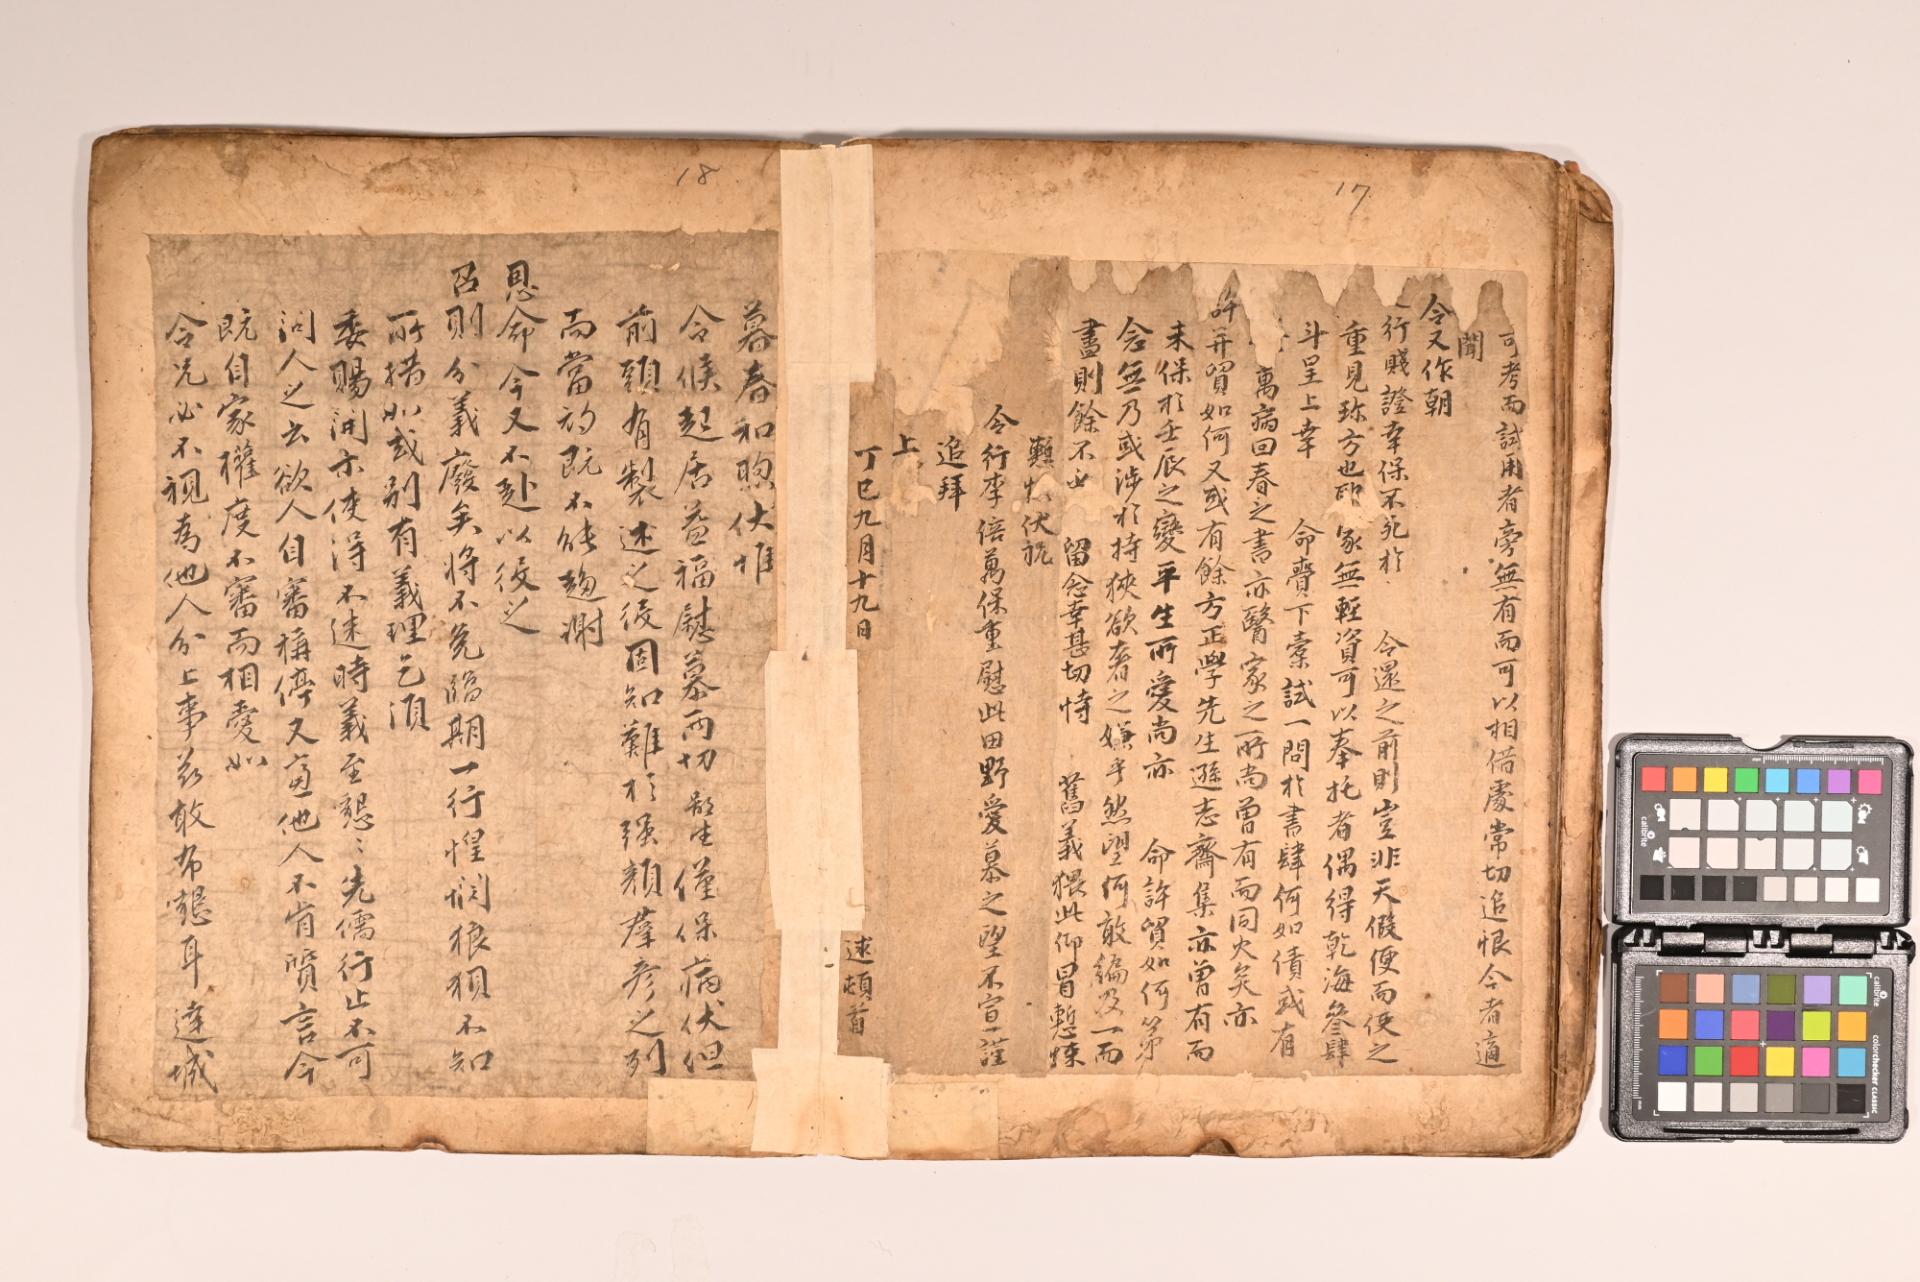 17
可考而試用者旁無有而可以相借處常切追恨今者適
聞
令又作朝
行賤證幸保不死於 令還之前則豈非天假便而使之
重見珍方也 家無輕資可以奉托者偶得乾海參肆
斗呈上幸 命賣下藁試一問於書肆何如債或有
萬病回春之書亦醫家之所尚曾有而同火矣亦
許并買如何又或有餘方正學先生遜志齋集亦曾有而
未保於壬辰之變平生所愛尚亦 命許貿如何第
念無乃或涉於持狹欲奢之嫌乎然望何敢編及一而
盡則餘不必 留念幸甚切恃 舊義猥此仰冒慙悚
伏祝
令行李倍萬保重慰此田野愛慕之望不宣謹
追拜
上
丁巳九月十九日 逑頓首
18
暮春和煦伏惟
令候起居益福慰慕兩切鄙生僅保病伏但
前頭有製述之役固知難於强顔羣彦之列
而當初既不能趨謝
恩命今又不赴以役之
召則分義廢矣將不免臨期一行惶悶狼狽不知
所措如或別有義理乞須
委賜開示使得不迷時義至懇〻先儒行止不可
問人之云欲人自審稱停又寧他人不肯質言今
既自家權度不審而相愛如
令兄必不視爲他人分上事玆敢布懇耳達城